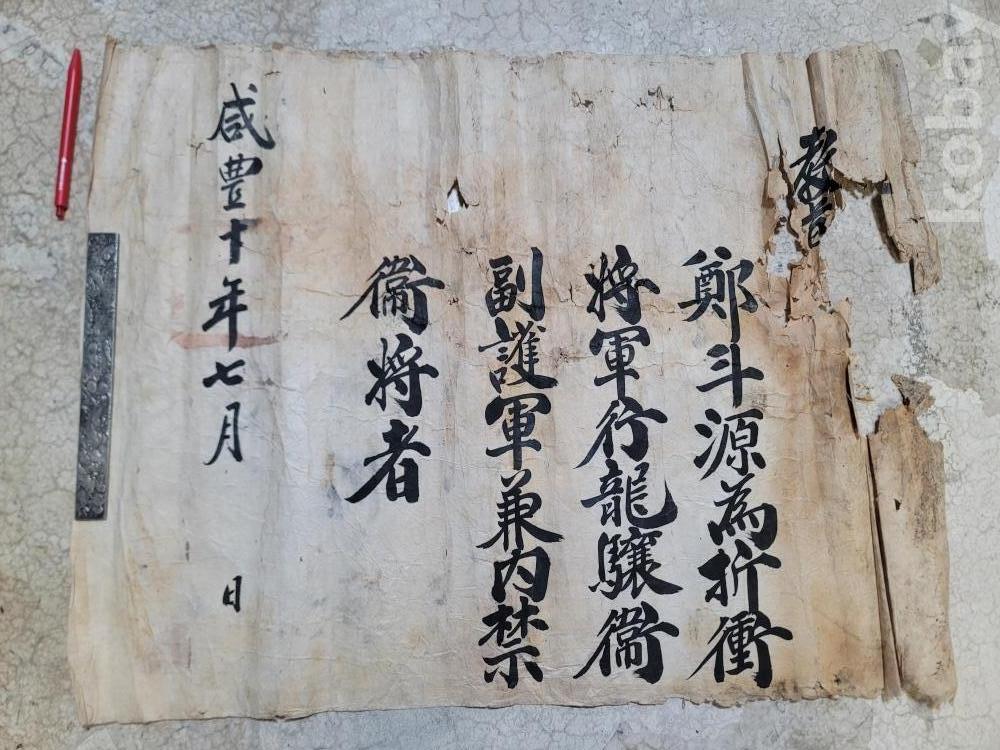 教旨
鄭斗源為折衝
將軍行龍驤衛
副護軍兼內禁
衛將者
咸豊十年七月 日
kobay